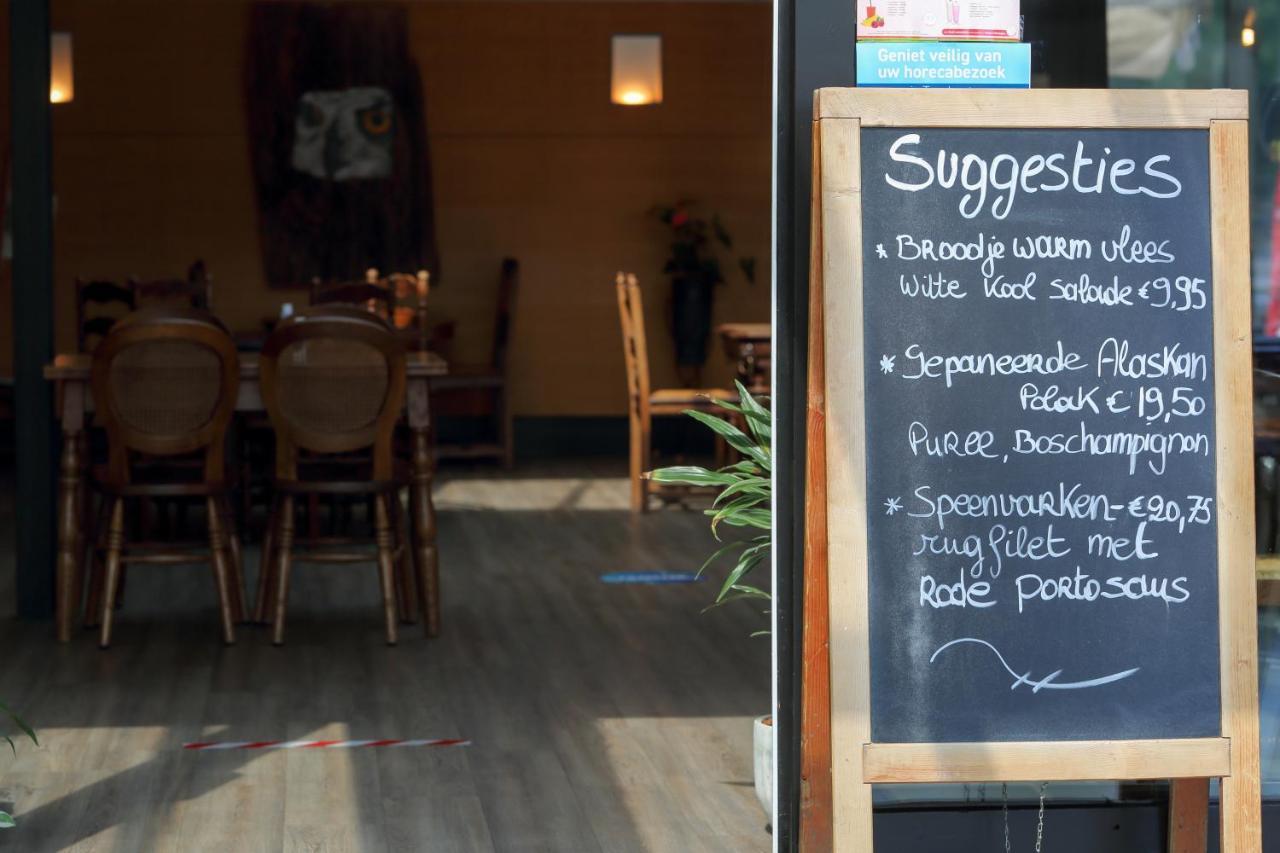 Geniet veilig van
uw horecabezoek
Suggesties
* Broodje warm vlees
Witte Kool Salade €9,95
* Gepaneerde Alaskan
Polak € 19,50
Puree, Boschampignon
* Speenvarken- €20,75
rugfilet met
Rode Portosaus